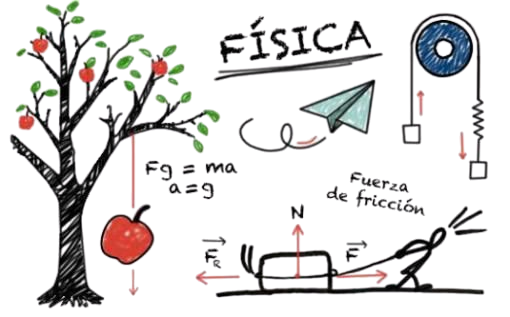 FÍSICA
Fg = ma
a = g
Fuerza
de fricción
N
F_R
F